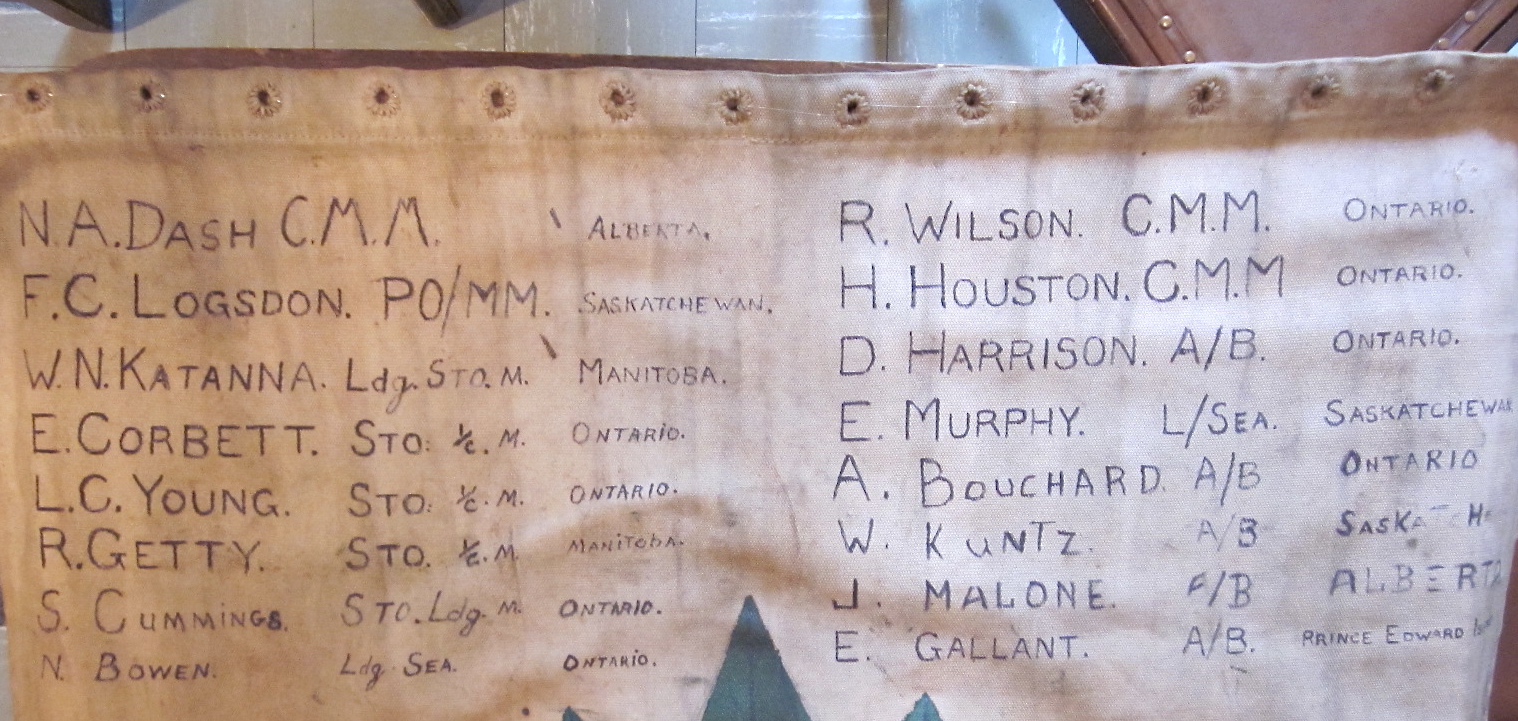 N.A. DASH C.M.M. ALBERTA.
F.C. LOGSDON. PO/MM. SASKATCHEWAN.
W.N. KATANNA. Ldg. STO. M. MANITOBA.
E. CORBETT. STO: 1/c. M. ONTARIO.
L.C. YOUNG. STO: 1/c. M. ONTARIO.
R. GETTY. STO. 1/c. M. MANITOBA.
S. CUMMINGS. STO. Ldg. M. ONTARIO.
N. BOWEN. Ldg. SEA. ONTARIO.
R. WILSON. C.M.M. ONTARIO.
H. HOUSTON. C.M.M ONTARIO.
D. HARRISON. A/B. ONTARIO.
E. MURPHY. L/SEA. SASKATCHEWAN
A. BOUCHARD. A/B ONTARIO
W. KUNTZ. A/B
J. MALONE. A/B ALBERTA
E. GALLANT. A/B. PRINCE EDWARD